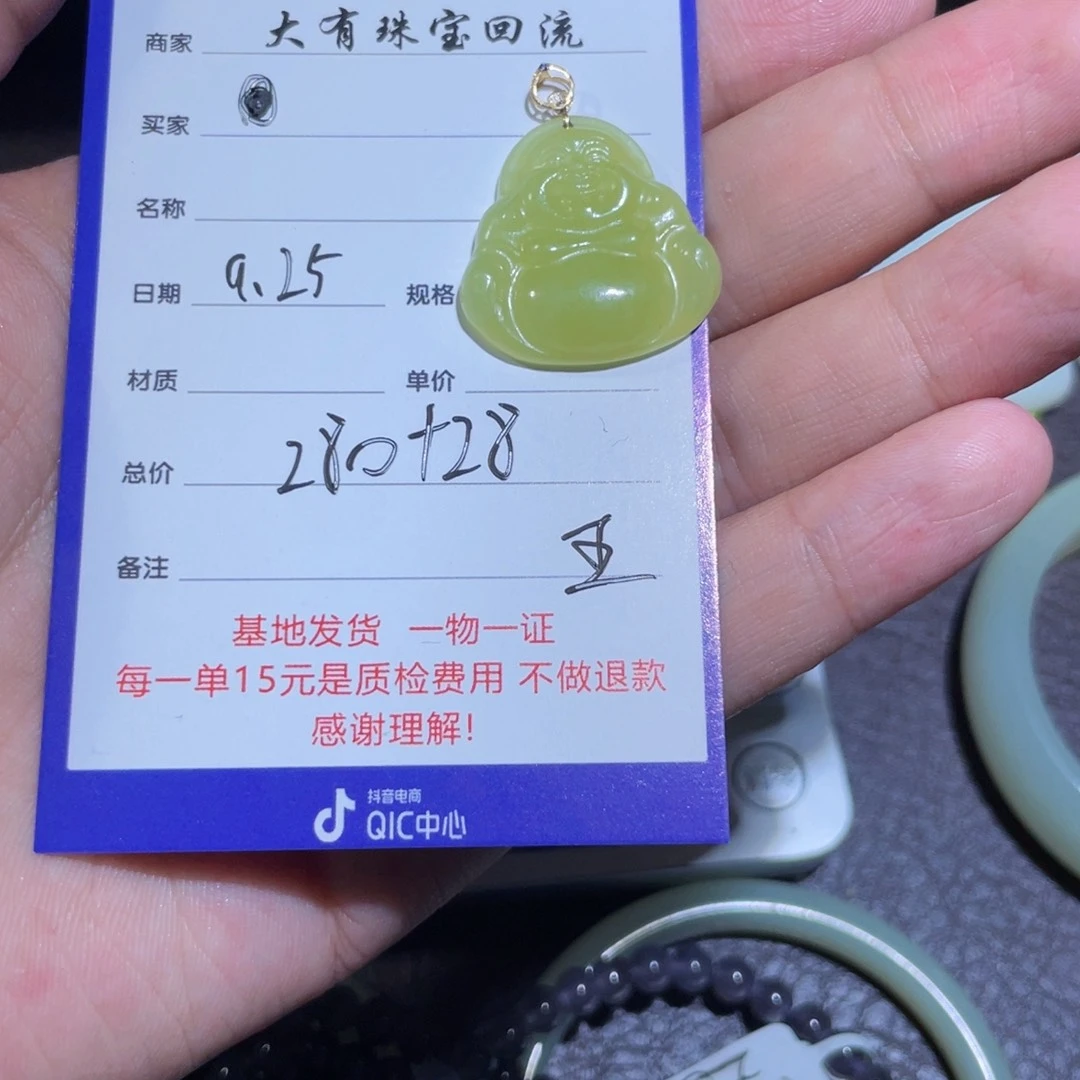 商家 大有珠宝回流
买家
名称
日期 9.25 规格
材质 单价
总价 2800+28
备注 王
基地发货 一物一证
每一单15元是质检费用 不做退款
感谢理解!
抖音电商
QIC中心